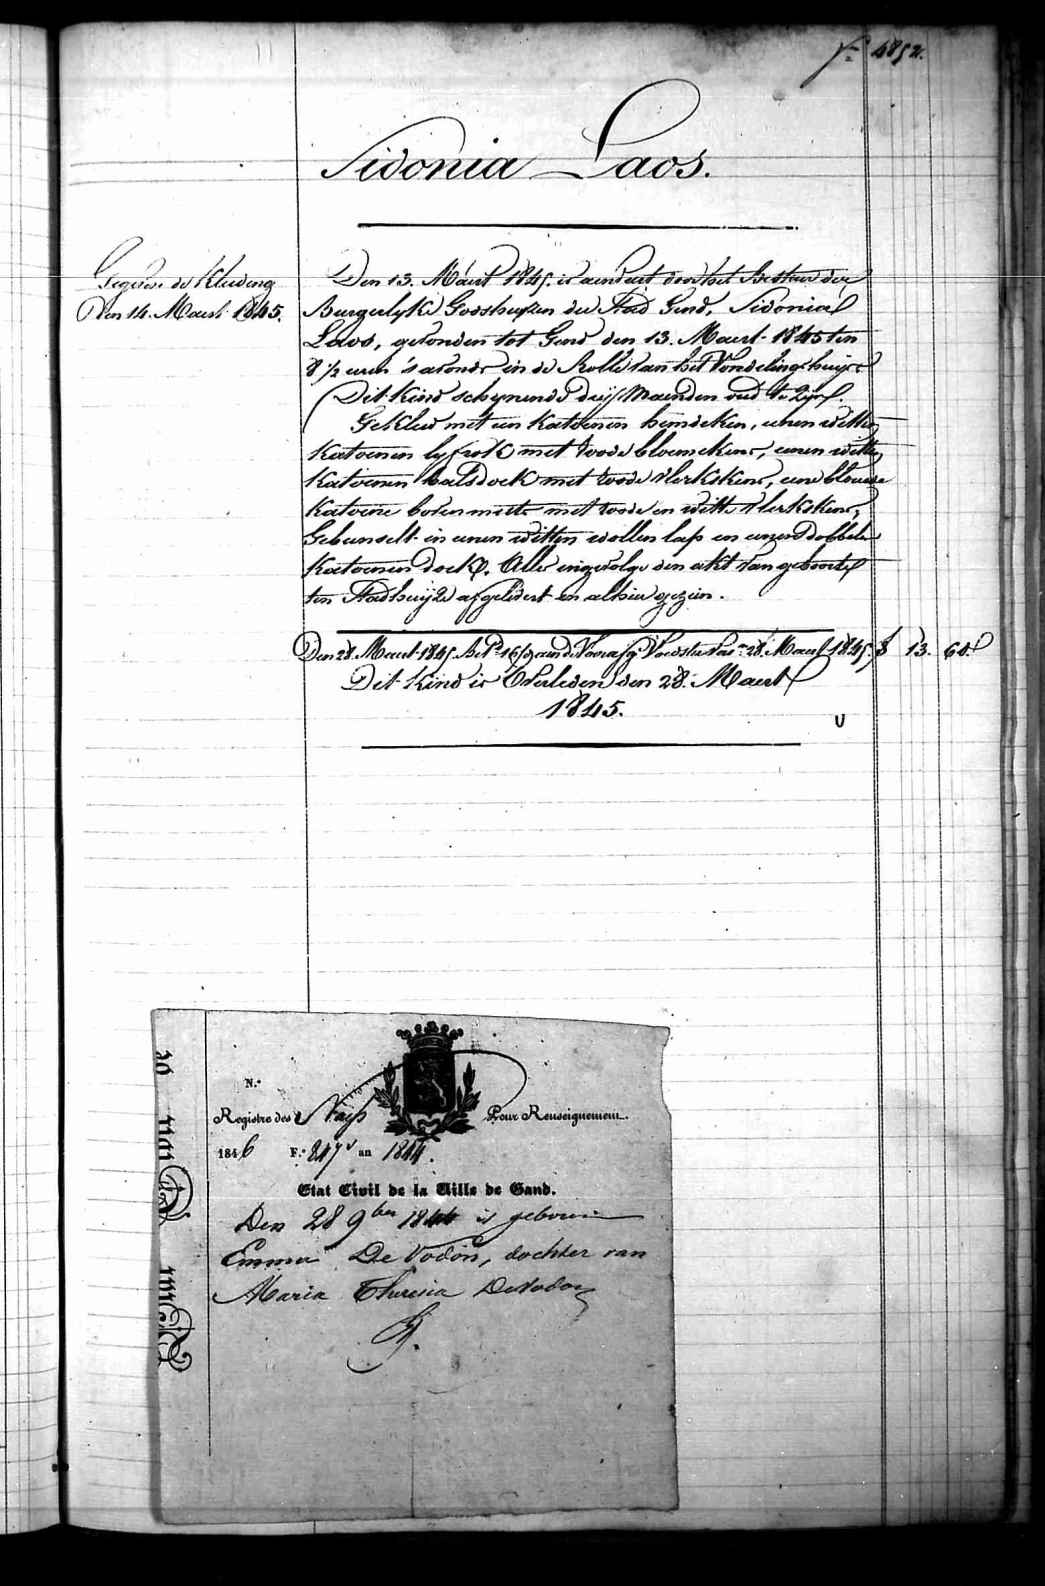 N.° 4852.
Sidonia Laos.
Gegeven de Kleeding
Den 14. Maert 1845.
Den 13. Maert 1845. is aenveert door het Bestuer der
Burgerlyke Godshuyzen der Stad Gend, Sidonia
Laos, gevonden tot Gend den 13. Maert 1845 ten
8 ½ euren 's avonds in de Rolle van het Vondelinghuys
(Dit Kind schynende dry Maenden oud te Zyn).
Gekleed met een Katoenen hemdeken, eenen witten
Katoenen lyfrok met roode bloemekens, eenen witten
Katoenen halsdoek met roode vlekskens, eene blauwe
Katoene bovenmuts met roode en witte vlekskens,
Gebunselt in eenen witten wollen lap en eenen dobbelen
Katoenen doek. Alles ingevolge den akt van geboorte
ten Stadhuyze afgelevert en alhier gezien.
Den 28. Maert 1845. Bet.d 16 aen de Voedster 28. Maert 1845. 13. 60.
Dit Kind is Overleden den 28. Maert
1845.
N.°
Registre des Naiss Pour Renseignement.
1846 F.° 247 v an 1844.
Etat Civil de la Ville de Gand.
Den 28 9ber 1844 is geboren
Emma De Vodon, dochter van
Maria Theresia De Vodon